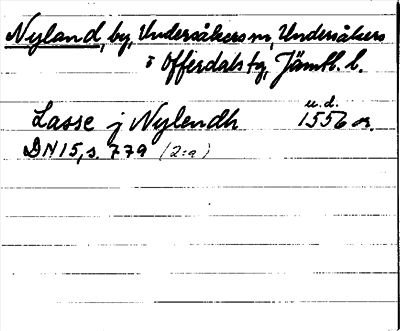 Nyland, by, Undersåkers sn, Undersåkers
o Offerdals tg, Jämtl. l.
u.d.
Lasse j Nylendh 1556 or.
DN 15, s. 779 (2:a)